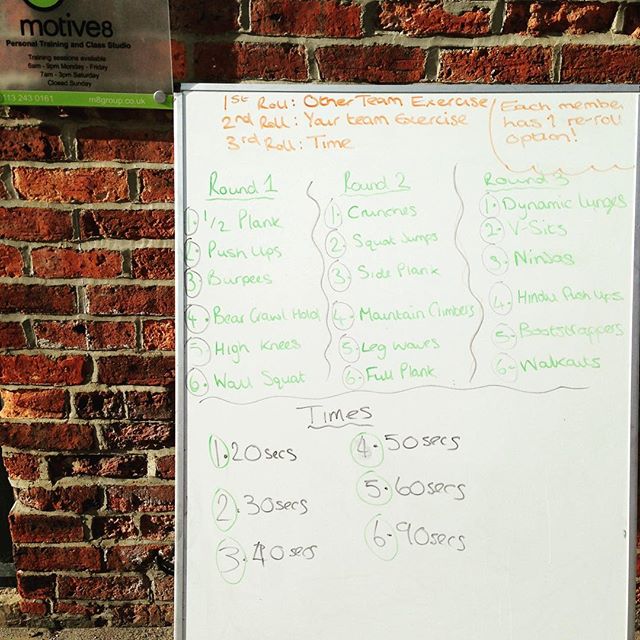 motive8
Personal Training and Class Studio
Training sessions available
6am - 9pm Monday - Friday
7am - 3pm Saturday
Closed Sunday
113 243 0161
m8group.co.uk
1st Roll: Other Team Exercise
2nd Roll: Your team Exercise
3rd Roll: Time
Each member
has 1 re-roll
option!
Round 1
1. 1/2 Plank
2. Push Ups
3. Burpees
4. Bear Crawl Hold
5. High Knees
6. Wall Squat
Round 2
1. Crunches
2. Squat Jumps
3. Side Plank
4. Mountain Climbers
5. Leg Waves
6. Full Plank
Round 3
1. Dynamic Lunges
2. V-Sits
3. Ninjas
4. Hindu Push Ups
5. Bootstrappers
6. Walkouts
Times
1. 20secs
2. 30secs
3. 40secs
4. 50secs
5. 60secs
6. 90secs